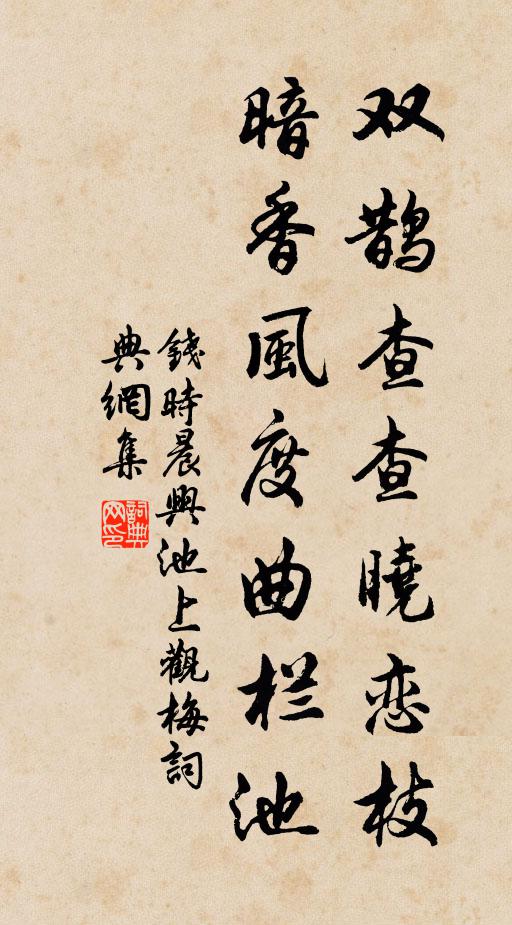 双鹊查查曉恋枝
暗香風度曲栏池
錢時晨興池上觀梅詞
典網集
詞典
网印